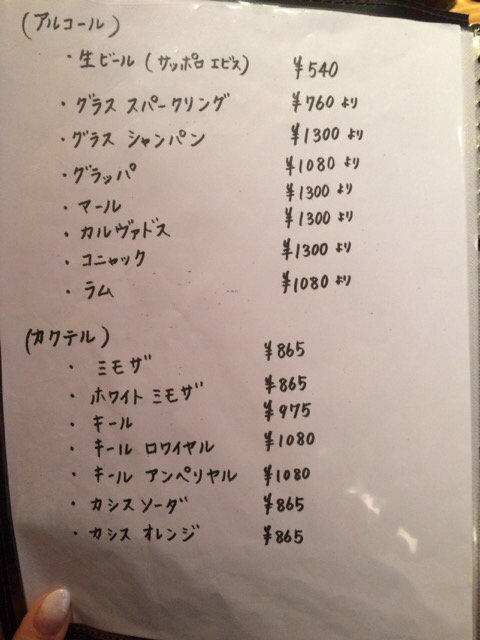 (アルコール)
・生ビール (サッポロ エビス) ¥540
・グラス スパークリング ¥760 より
・グラス シャンパン ¥1300 より
・グラッパ ¥1080 より
・マール ¥1300 より
・カルヴァドス ¥1300 より
・コニャック ¥1300 より
・ラム ¥1080 より
(カクテル)
・ミモザ ¥865
・ホワイト ミモザ ¥865
・キール ¥975
・キール ロワイヤル ¥1080
・キール アンペリヤル ¥1080
・カシス ソーダ ¥865
・カシス オレンジ ¥865